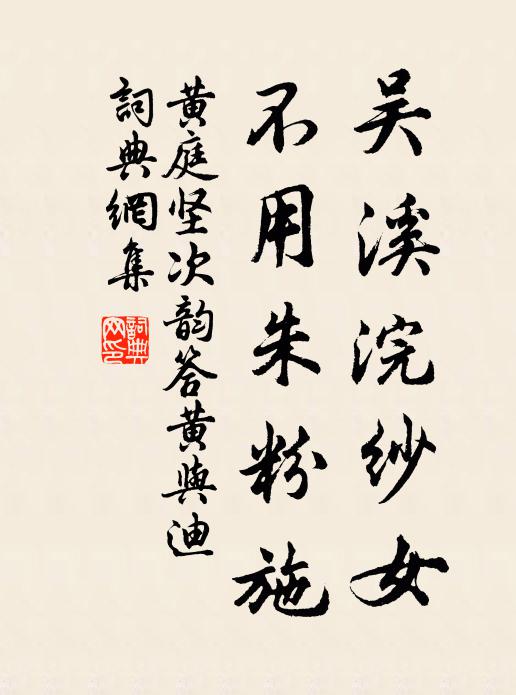 吴溪浣纱女
不用朱粉施
黄庭坚次韵答黄與迪
詞典網集
詞典
网印